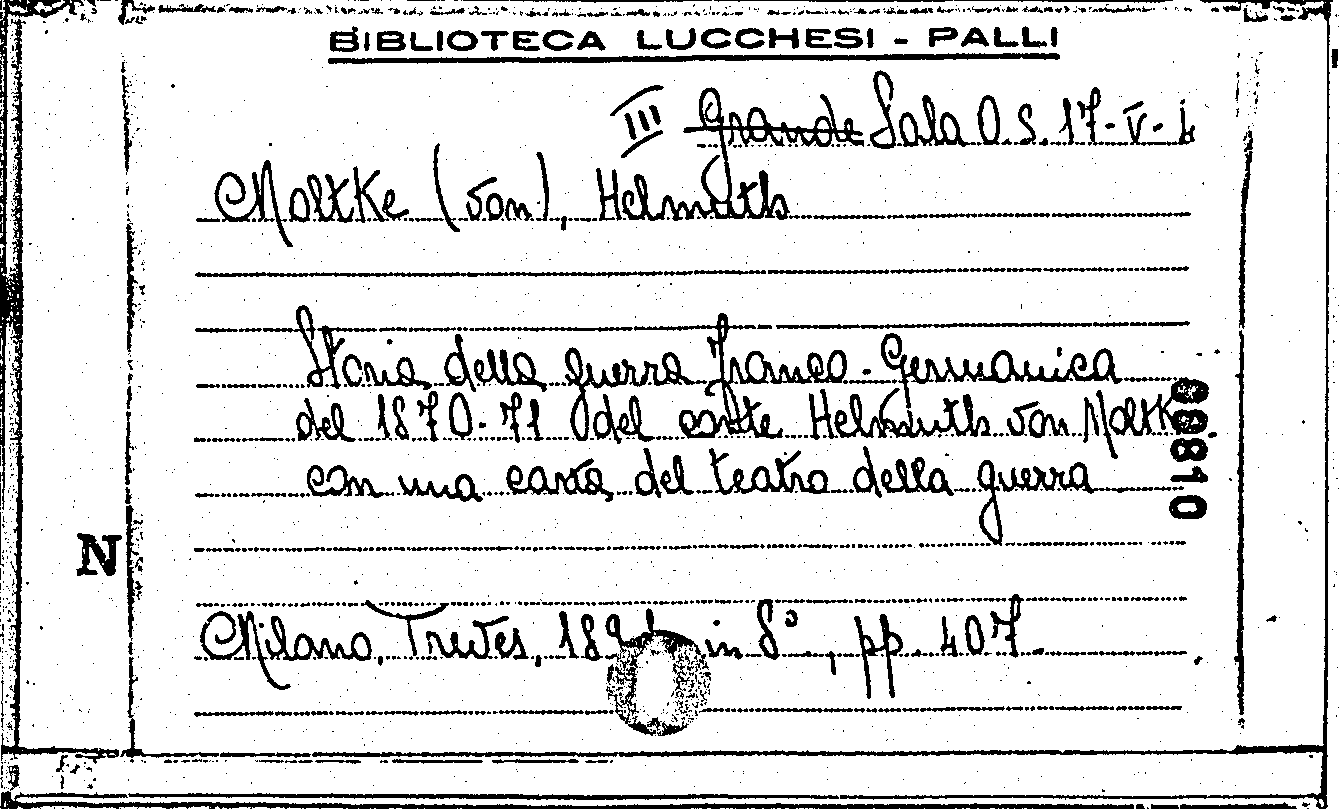 BIBLIOTECA LUCCHESI - PALLI
III Grande Sala O.S. 17-V-
Moltke (von), Helmuth
Storia della guerra Franco-Germanica
del 1870-71 del conte Helmuth von Moltke
con una carta del teatro della guerra
08810
N
Milano, Treves, in 8°, pp. 407.